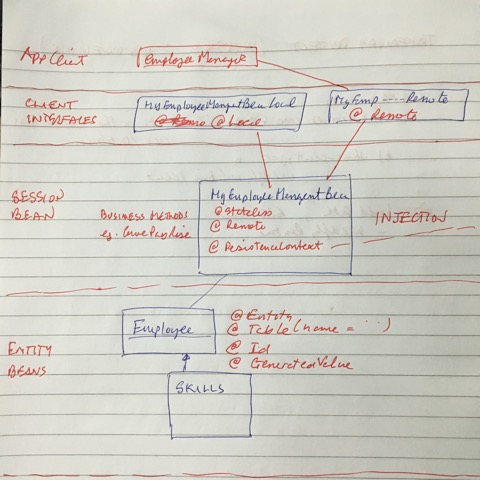 App Client
Employee Manager
CLIENT
INTERFACES
MyEmployeeMangentBean Local
@ Local
MyEmp ---- Remote
@ Remote
SESSION
BEAN
BUSINESS METHODS
eg. GivePayRise
MyEmployeeMangentBean
@ Stateless
@ Remote
@ PersistenceContext
INJECTION
ENTITY
BEANS
Employee
@ Entity
@ Table (name = ...)
@ Id
@ GeneratedValue
SKILLS